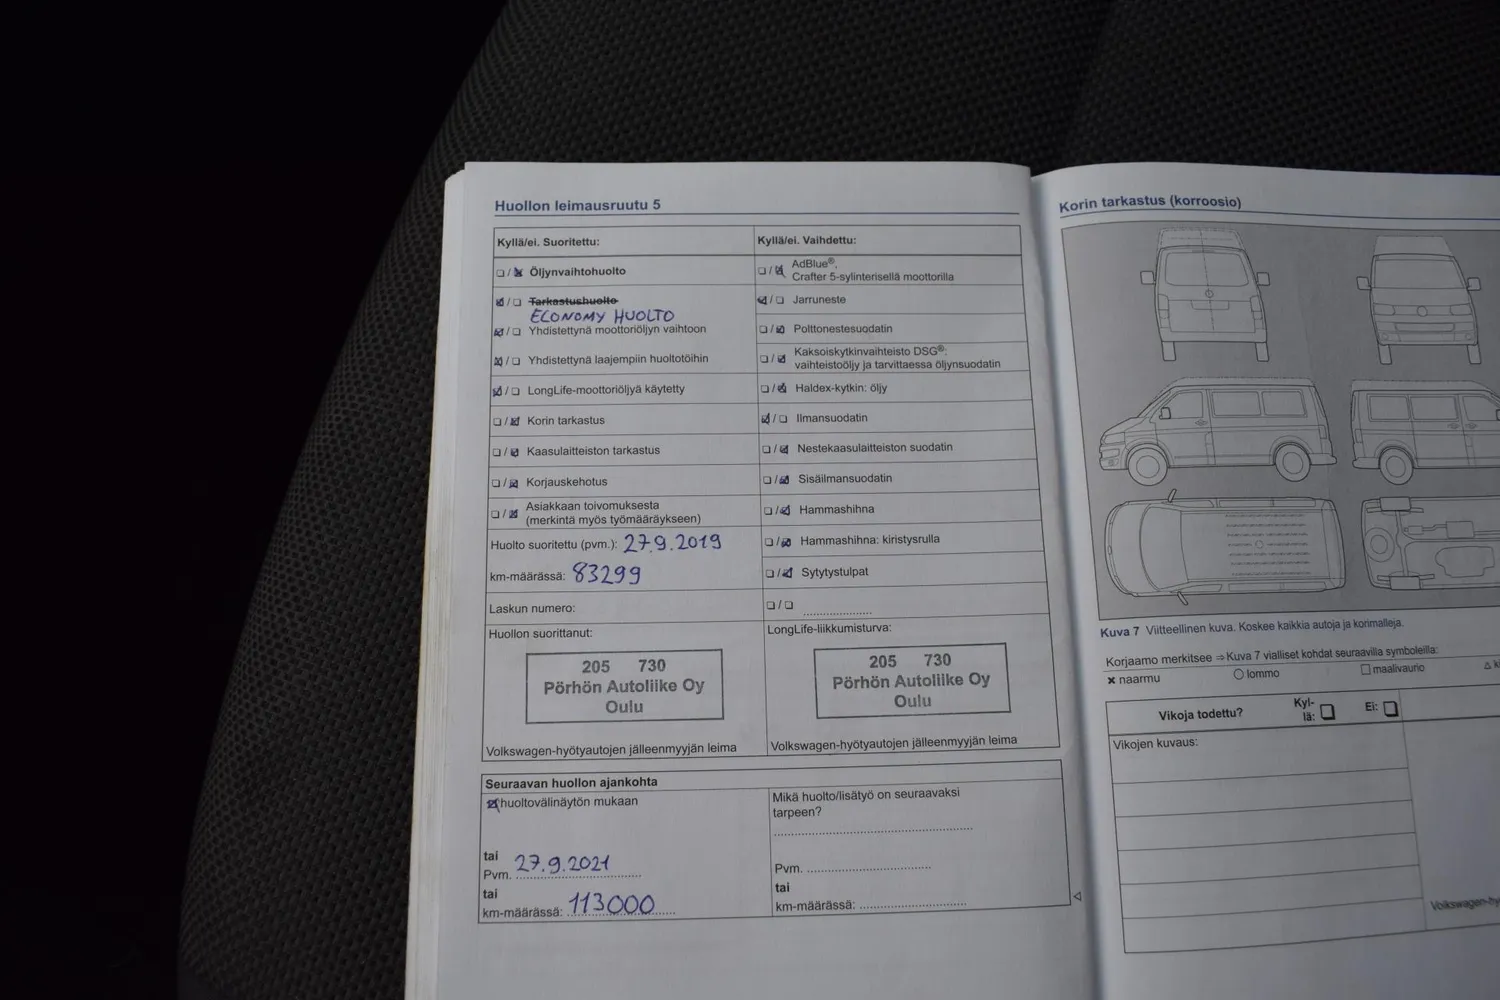 Huollon leimausruutu 5
Kyllä/ei. Suoritettu:
☐ / ☒ Öljynvaihtohuolto
☒ / ☐ Tarkastushuolto
ECONOMY HUOLTO
☒ / ☐ Yhdistettynä moottoriöljyn vaihtoon
☒ / ☐ Yhdistettynä laajempiin huoltotöihin
☒ / ☐ LongLife-moottoriöljyä käytetty
☐ / ☒ Korin tarkastus
☐ / ☒ Kaasulaitteiston tarkastus
☐ / ☒ Korjauskehotus
☐ / ☒ Asiakkaan toivomuksesta
(merkintä myös työmääräykseen)
Huolto suoritettu (pvm.): 27.9.2019
km-määrässä: 83299
Laskun numero:
Huollon suorittanut:
205 730
Pörhön Autoliike Oy
Oulu
Volkswagen-hyötyautojen jälleenmyyjän leima
Kyllä/ei. Vaihdettu:
☐ / ☒ AdBlue®,
Crafter 5-sylinterisellä moottorilla
☒ / ☐ Jarruneste
☐ / ☒ Polttonestesuodatin
☐ / ☒ Kaksoiskytkinvaihteisto DSG®:
vaihteistoöljy ja tarvittaessa öljynsuodatin
☐ / ☒ Haldex-kytkin: öljy
☒ / ☐ Ilmansuodatin
☐ / ☒ Nestekaasulaitteiston suodatin
☐ / ☒ Sisäilmansuodatin
☐ / ☒ Hammashihna
☐ / ☒ Hammashihna: kiristysrulla
☐ / ☒ Sytytystulpat
☐ / ☐ ....................
LongLife-liikkumisturva:
205 730
Pörhön Autoliike Oy
Oulu
Volkswagen-hyötyautojen jälleenmyyjän leima
Seuraavan huollon ajankohta
☒ huoltovälinäytön mukaan
tai
Pvm. 27.9.2021
tai
km-määrässä: 113000
Mikä huolto/lisätyö on seuraavaksi
tarpeen?
Pvm. ....................
tai
km-määrässä: ....................
Korin tarkastus (korroosio)
Kuva 7 Viitteellinen kuva. Koskee kaikkia autoja ja korimalleja.
Korjaamo merkitsee ⇒ Kuva 7 vialliset kohdat seuraavilla symboleilla:
× naarmu ○ lommo □ maalivaurio △
Vikoja todettu? Kyl-
lä: ☐ Ei: ☐
Vikojen kuvaus: